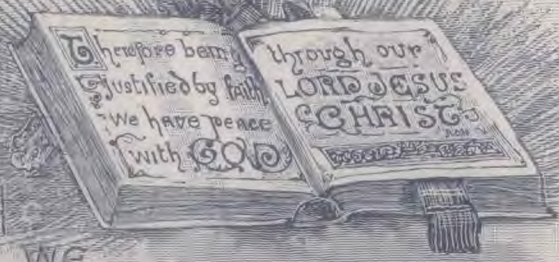 Therefore being
Justified by faith
we have peace
with GOD
through our
LORD JESUS
CHRIST
W.G.